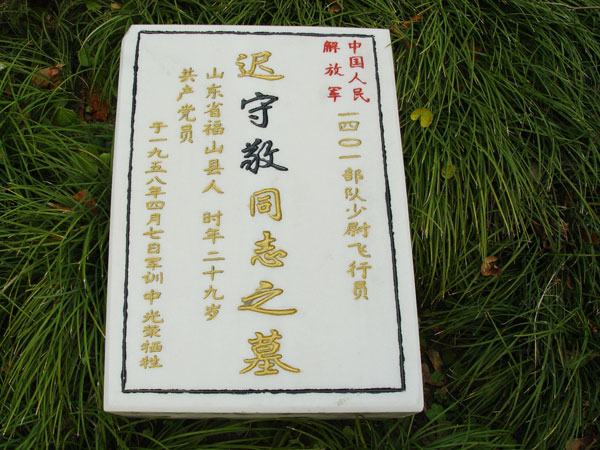 中国人民
解放军
一四〇一部队少尉飞行员
迟守敬同志之墓
山东省福山县人 时年二十九岁
共产党员
于一九五八年四月七日军训中光荣牺牲